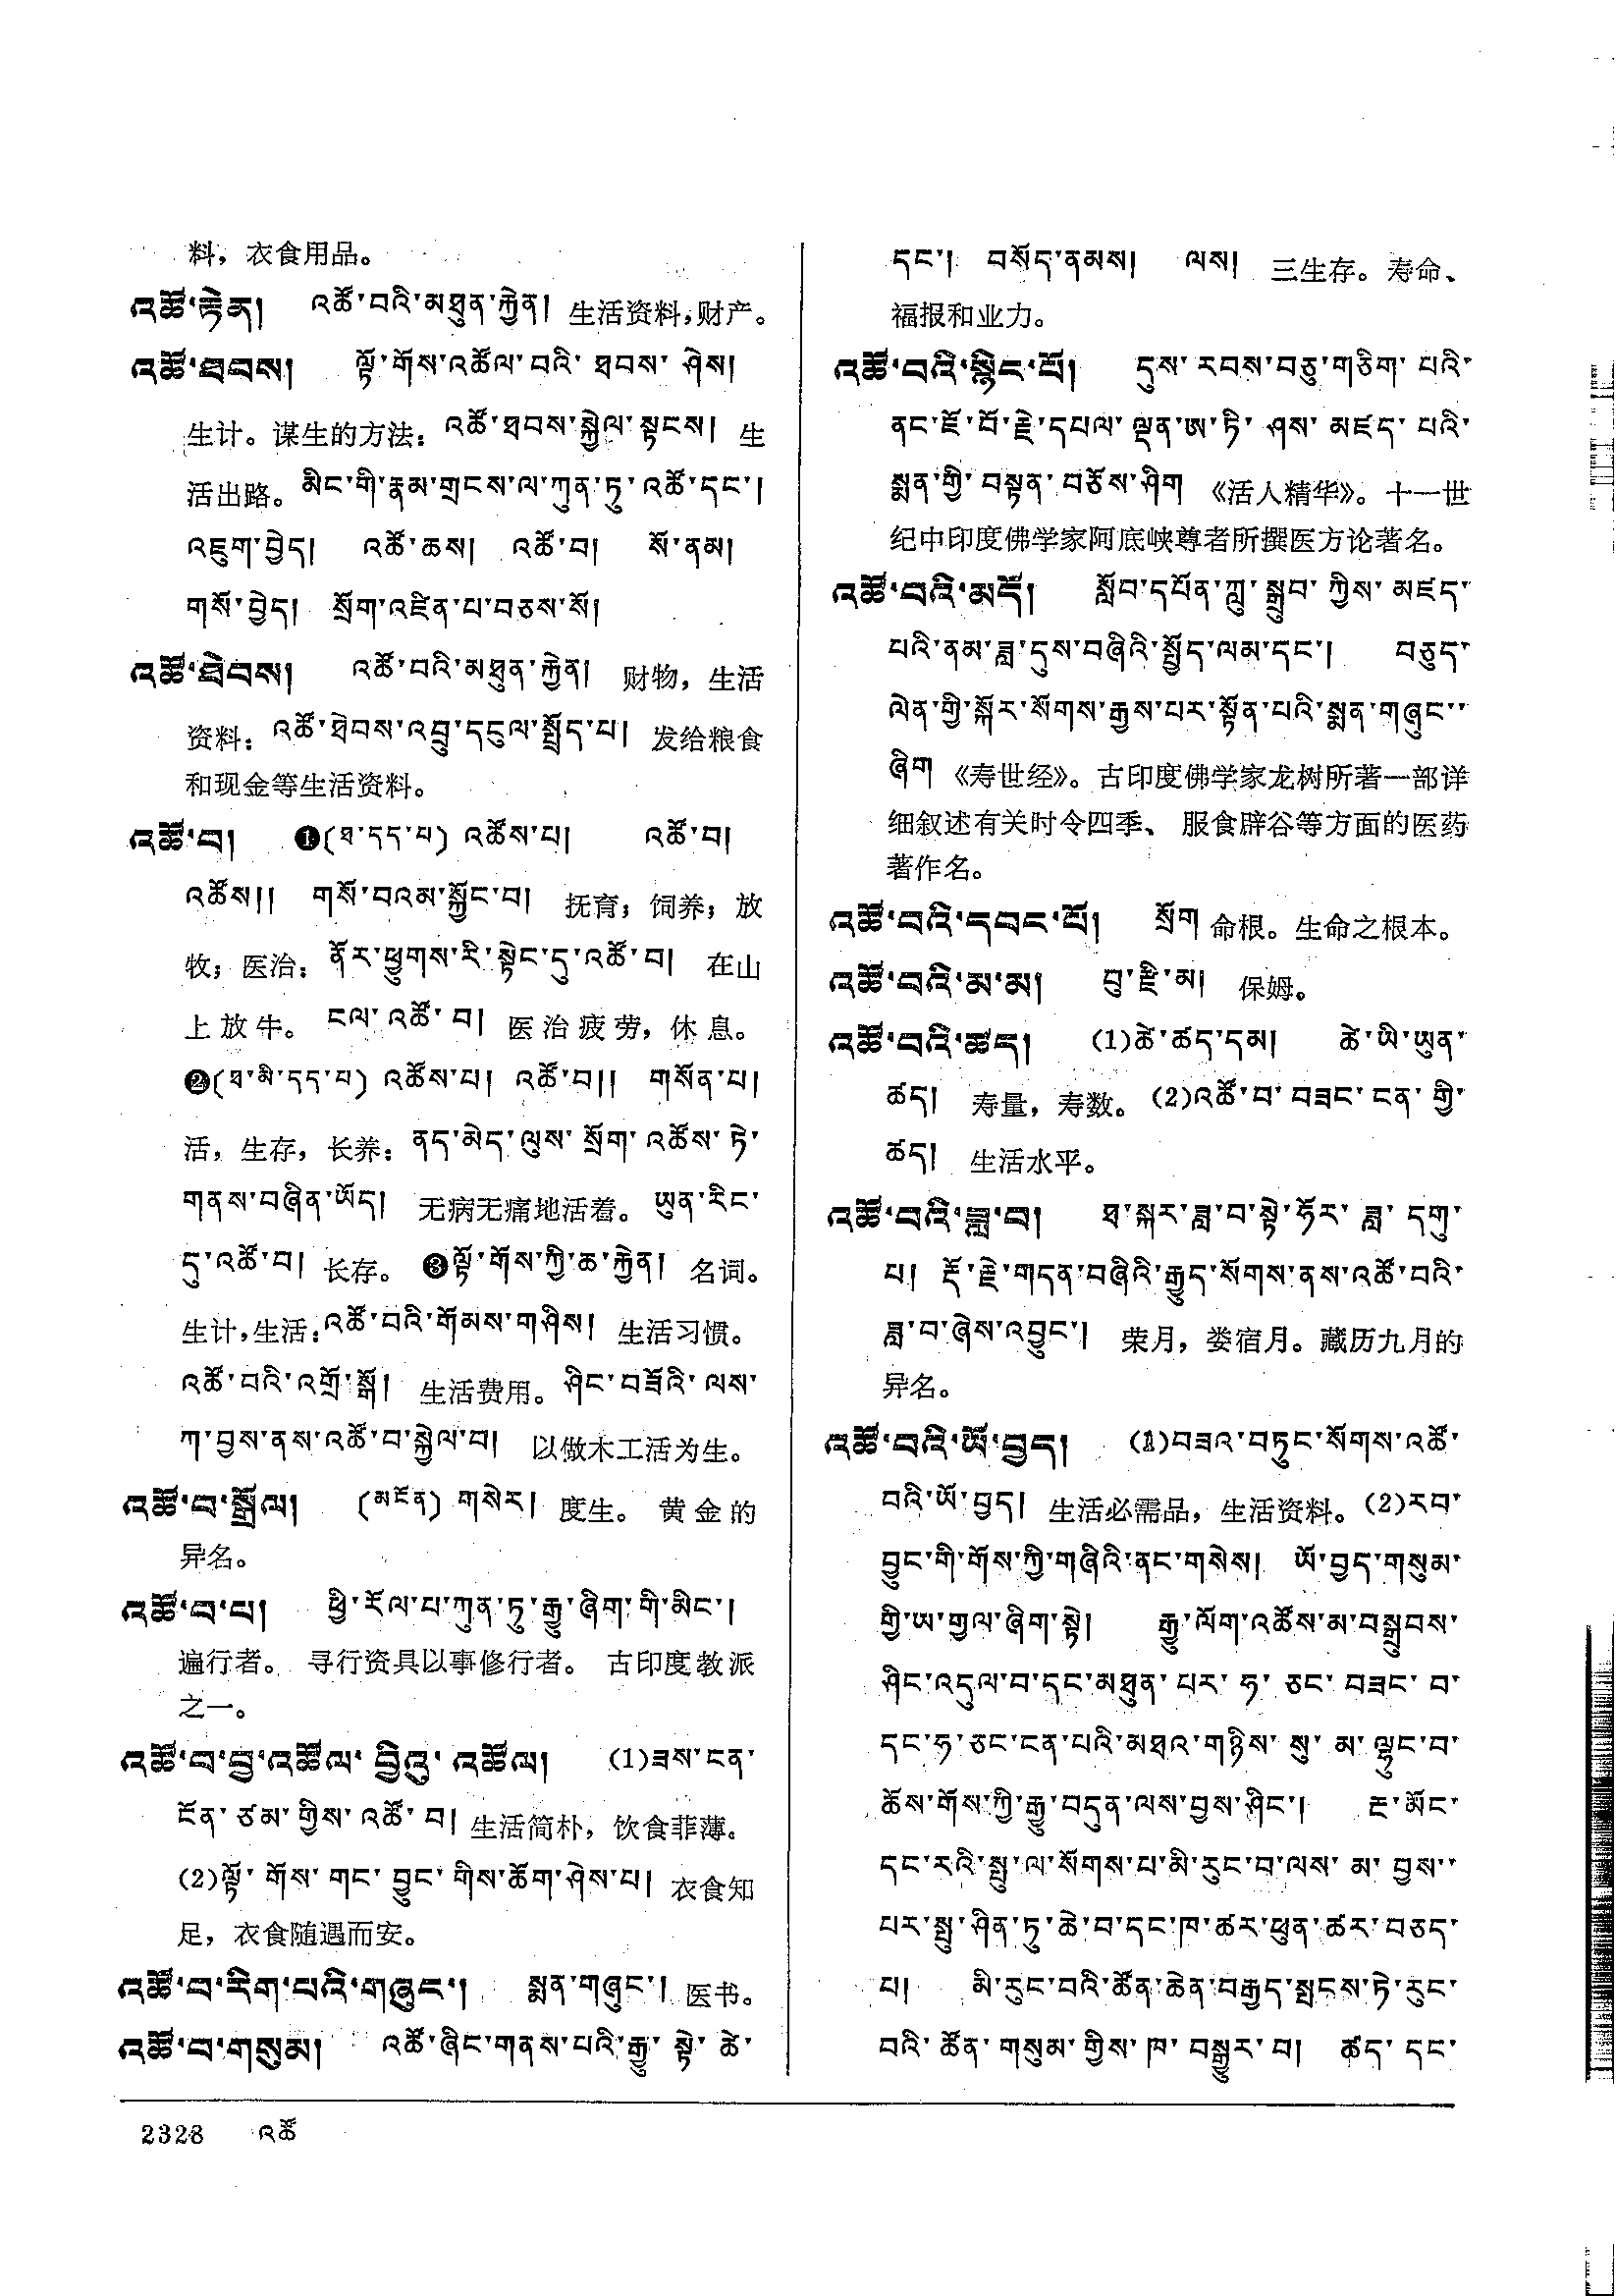 料，衣食用品。
འཚོ་རྟེན། འཚོ་བའི་མཐུན་རྐྱེན། 生活资料，财产。
འཚོ་ཐབས། ལྟོ་གོས་འཚོལ་བའི་ཐབས་ཤེས།
生计。谋生的方法：འཚོ་ཐབས་སྐྱེལ་སྟངས། 生
活出路。མིང་གི་རྣམ་གྲངས་ལ་ཀུན་ཏུ་འཚོ་དང་།
འཇུག་བྱེད། འཚོ་ཆས། འཚོ་བ། སོ་ནམ།
གསོ་བྱེད། སྲོག་འཛིན་པ་བཅས་སོ།
འཚོ་ཐེབས། འཚོ་བའི་མཐུན་རྐྱེན། 财物，生活
资料：འཚོ་ཐེབས་འབྲུ་དངུལ་སྤྲོད་པ། 发给粮食
和现金等生活资料。
འཚོ་བ། ❶(ཐ་དད་པ) འཚོས་པ། འཚོ་བ།
འཚོས།། གསོ་བའམ་སྐྱོང་བ། 抚育；饲养；放
牧；医治：ནོར་ཕྱུགས་རི་སྟེང་དུ་འཚོ་བ། 在山
上放牛。ངལ་འཚོ་བ། 医治疲劳，休息。
❷(ཐ་མི་དད་པ) འཚོས་པ། འཚོ་བ།། གསོན་པ།
活，生存，长养：ནད་མེད་ལུས་སྲོག་འཚོས་ཏེ་
གནས་བཞིན་ཡོད། 无病无痛地活着。ཡུན་རིང་
དུ་འཚོ་བ། 长存。❸ལྟོ་གོས་ཀྱི་ཆ་རྐྱེན། 名词。
生计，生活：འཚོ་བའི་གོམས་གཤིས། 生活习惯。
འཚོ་བའི་འགྲོ་སྒོ། 生活费用。ཤིང་བཟོའི་ལས་
ཀ་བྱས་ནས་འཚོ་བ་སྐྱེལ་བ། 以做木工活为生。
འཚོ་བ་སྒྲོལ། (མངོན) གསེར། 度生。黄金的
异名。
འཚོ་བ་པ། ཕྱི་རོལ་པ་ཀུན་ཏུ་རྒྱུ་ཞིག་གི་མིང་།
遍行者。寻行资具以事修行者。古印度教派
之一。
འཚོ་བ་བྱ་འཚོལ་བྱིའུ་འཚོལ། (1)ཟས་ངན་
ངོན་ཙམ་གྱིས་འཚོ་བ། 生活简朴，饮食菲薄。
(2)ལྟོ་གོས་གང་བྱུང་གིས་ཆོག་ཤེས་པ། 衣食知
足，衣食随遇而安。
འཚོ་བ་རིག་པའི་གཞུང་། སྨན་གཞུང་། 医书。
འཚོ་བ་གསུམ། འཚོ་ཞིང་གནས་པའི་རྒྱུ་སྟེ་ཚེ་
དང་། བསོད་ནམས། ལས། 三生存。寿命、
福报和业力。
འཚོ་བའི་སྙིང་པོ། དུས་རབས་བཅུ་གཅིག་པའི་
ནང་ཇོ་བོ་རྗེ་དཔལ་ལྡན་ཨ་ཏི་ཤས་མཛད་པའི་
སྨན་གྱི་བསྟན་བཅོས་ཤིག 《活人精华》。十一世
纪中印度佛学家阿底峡尊者所撰医方论著名。
འཚོ་བའི་མདོ། སློབ་དཔོན་ཀླུ་སྒྲུབ་ཀྱིས་མཛད་
པའི་ནམ་ཟླ་དུས་བཞིའི་སྤྱོད་ལམ་དང་། བཅུད་
ལེན་གྱི་སྐོར་སོགས་རྒྱས་པར་སྟོན་པའི་སྨན་གཞུང་་
ཞིག 《寿世经》。古印度佛学家龙树所著一部详
细叙述有关时令四季、服食辟谷等方面的医药
著作名。
འཚོ་བའི་དབང་པོ། སྲོག 命根。生命之根本。
འཚོ་བའི་མ་མ། བུ་རྫི་མ། 保姆。
འཚོ་བའི་ཚད། (1)ཚེ་ཚད་དམ། ཚེ་ཡི་ཡུན་
ཚད། 寿量，寿数。(2)འཚོ་བ་བཟང་ངན་གྱི་
ཚད། 生活水平。
འཚོ་བའི་ཟླ་བ། ཐ་སྐར་ཟླ་བ་སྟེ་ཧོར་ཟླ་དགུ་
པ། རྡོ་རྗེ་གདན་བཞིའི་རྒྱུད་སོགས་ནས་འཚོ་བའི་
ཟླ་བ་ཞེས་འབྱུང་། 荣月，娄宿月。藏历九月的
异名。
འཚོ་བའི་ཡོ་བྱད། (1)བཟའ་བཏུང་སོགས་འཚོ་
བའི་ཡོ་བྱད། 生活必需品，生活资料。(2)རབ་
བྱུང་གི་གོས་ཀྱི་གཞིའི་ནང་གསེས། ཡོ་བྱད་གསུམ་
གྱི་ཡ་གྱལ་ཞིག་སྟེ། རྒྱུ་ལོག་འཚོས་མ་བསྒྲུབས་
ཤིང་འདུལ་བ་དང་མཐུན་པར་ཧ་ཅང་བཟང་བ་
དང་ཧ་ཅང་ངན་པའི་མཐའ་གཉིས་སུ་མ་ལྷུང་བ་
ཆོས་གོས་ཀྱི་རྒྱུ་བདུན་ལས་བྱས་ཤིང་། རྔ་མོང་
དང་རའི་སྤུ་ལ་སོགས་པ་མི་རུང་བ་ལས་མ་བྱས་་
པར་སྤུ་ཤིན་ཏུ་ཆེ་བ་དང་ཁ་ཚར་ཕུན་ཚར་བཅད་
པ། མི་རུང་བའི་ཚོན་ཆེན་བརྒྱད་སྤངས་ཏེ་རུང་
བའི་ཚོན་གསུམ་གྱིས་ཁ་བསྒྱུར་བ། ཚད་དང་
2328 འཚོ